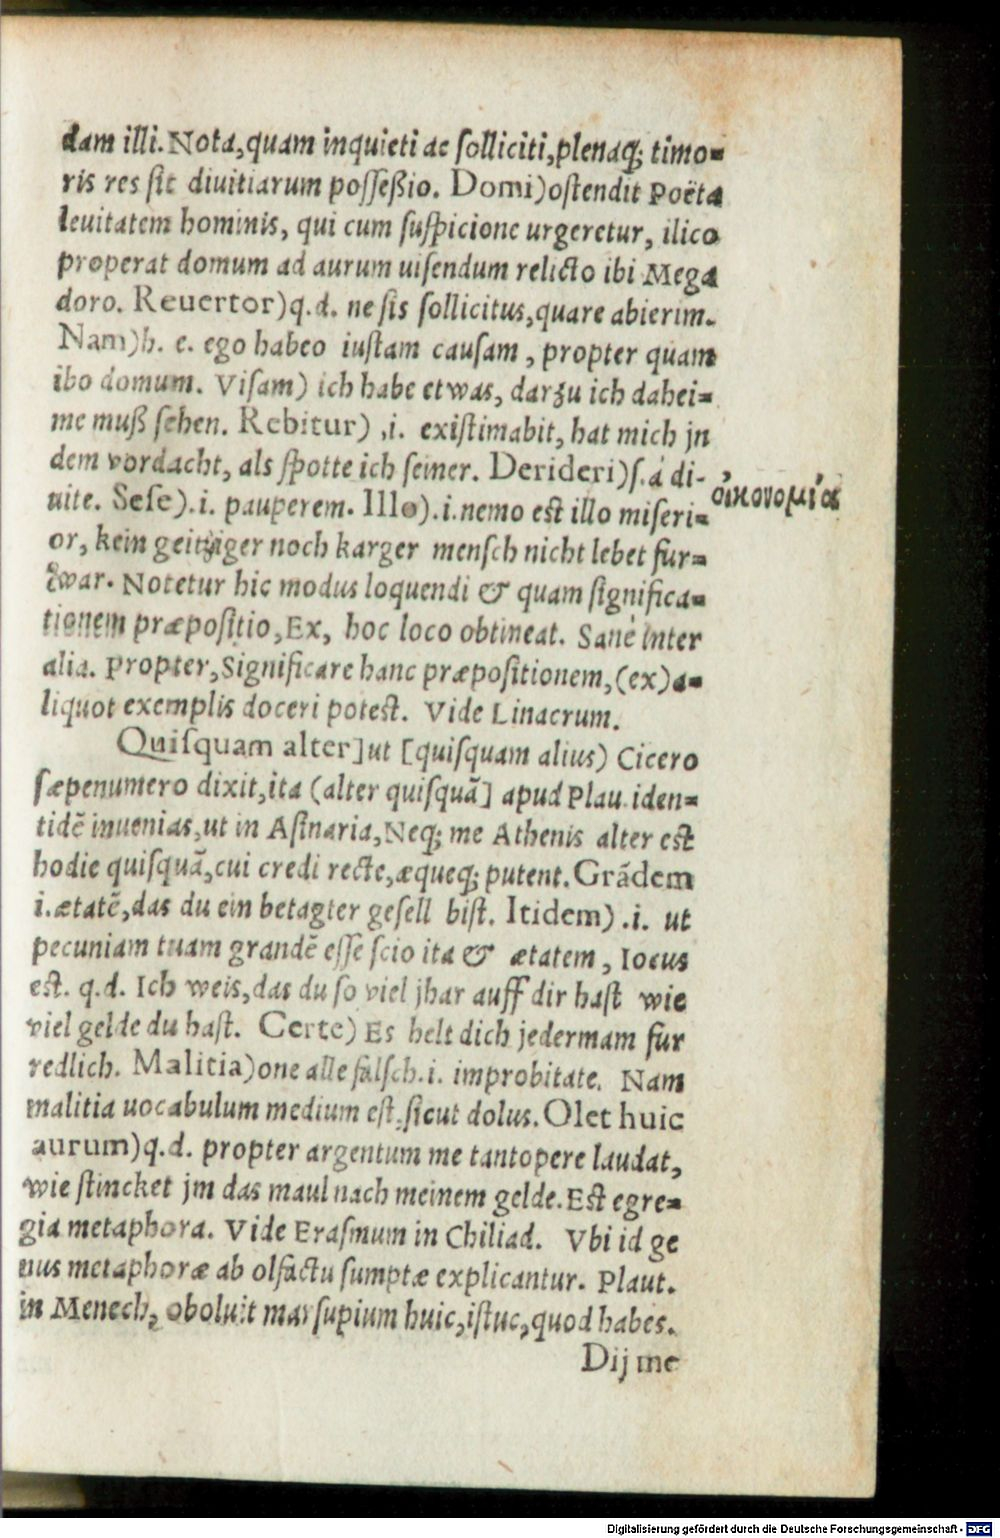 dam illi. Nota, quam inquieti ac ſolliciti, plenaq; timo=
ris res ſit diuitiarum poſſeßio. Domi) oſtendit Poëta
leuitatem hominis, qui cum ſuſpicione urgeretur, ilico
properat domum ad aurum uiſendum relicto ibi Mega
doro. Reuertor) q.d. ne ſis ſollicitus, quare abierim.
Nam) h. e. ego habeo iuſtam cauſam, propter quam
ibo domum. Viſam) ich habe etwas, darzu ich dahei=
me muß ſehen. Rebitur) .i. exiſtimabit, hat mich jn
dem vordacht, als ſpotte ich ſeiner. Derideri) ſ. à di-
uite. Seſe) .i. pauperem. Illo) .i. nemo eſt illo miſeri=
οἰκονομία
or, kein geitziger noch karger menſch nicht lebet fur=
zwar. Notetur hic modus loquendi & quam ſignifica=
tionem præpoſitio, Ex, hoc loco obtineat. Sanè inter
alia. Propter, Significare hanc præpoſitionem, (ex) a=
liquot exemplis doceri poteſt. Vide Linacrum.
Quiſquam alter] ut [quiſquam alius) Cicero
ſæpenumero dixit, ita (alter quiſquā] apud Plau. iden=
tidē inuenias, ut in Aſinaria, Neq; me Athenis alter eſt
hodie quiſquā, cui credi recte, æqueq; putent. Grādem
i. ætatē, das du ein betagter geſell biſt. Itidem) .i. ut
pecuniam tuam grandē eſſe ſcio ita & ætatem, Iocus
eſt. q.d. Ich weis, das du ſo viel jhar auff dir haſt wie
viel gelde du haſt. Certe) Es helt dich jedermam fur
redlich. Malitia) one alle falſch .i. improbitate. Nam
malitia uocabulum medium eſt, ſicut dolus. Olet huic
aurum) q.d. propter argentum me tantopere laudat,
wie ſtincket jm das maul nach meinem gelde. Eſt egre=
gia metaphora. Vide Eraſmum in Chiliad. Vbi id ge
nus metaphoræ ab olfactu ſumptæ explicantur. Plaut.
in Menech, oboluit marſupium huic, iſtuc, quod habes.
Dij me
Digitalisierung gefördert durch die Deutsche Forschungsgemeinschaft - DFG